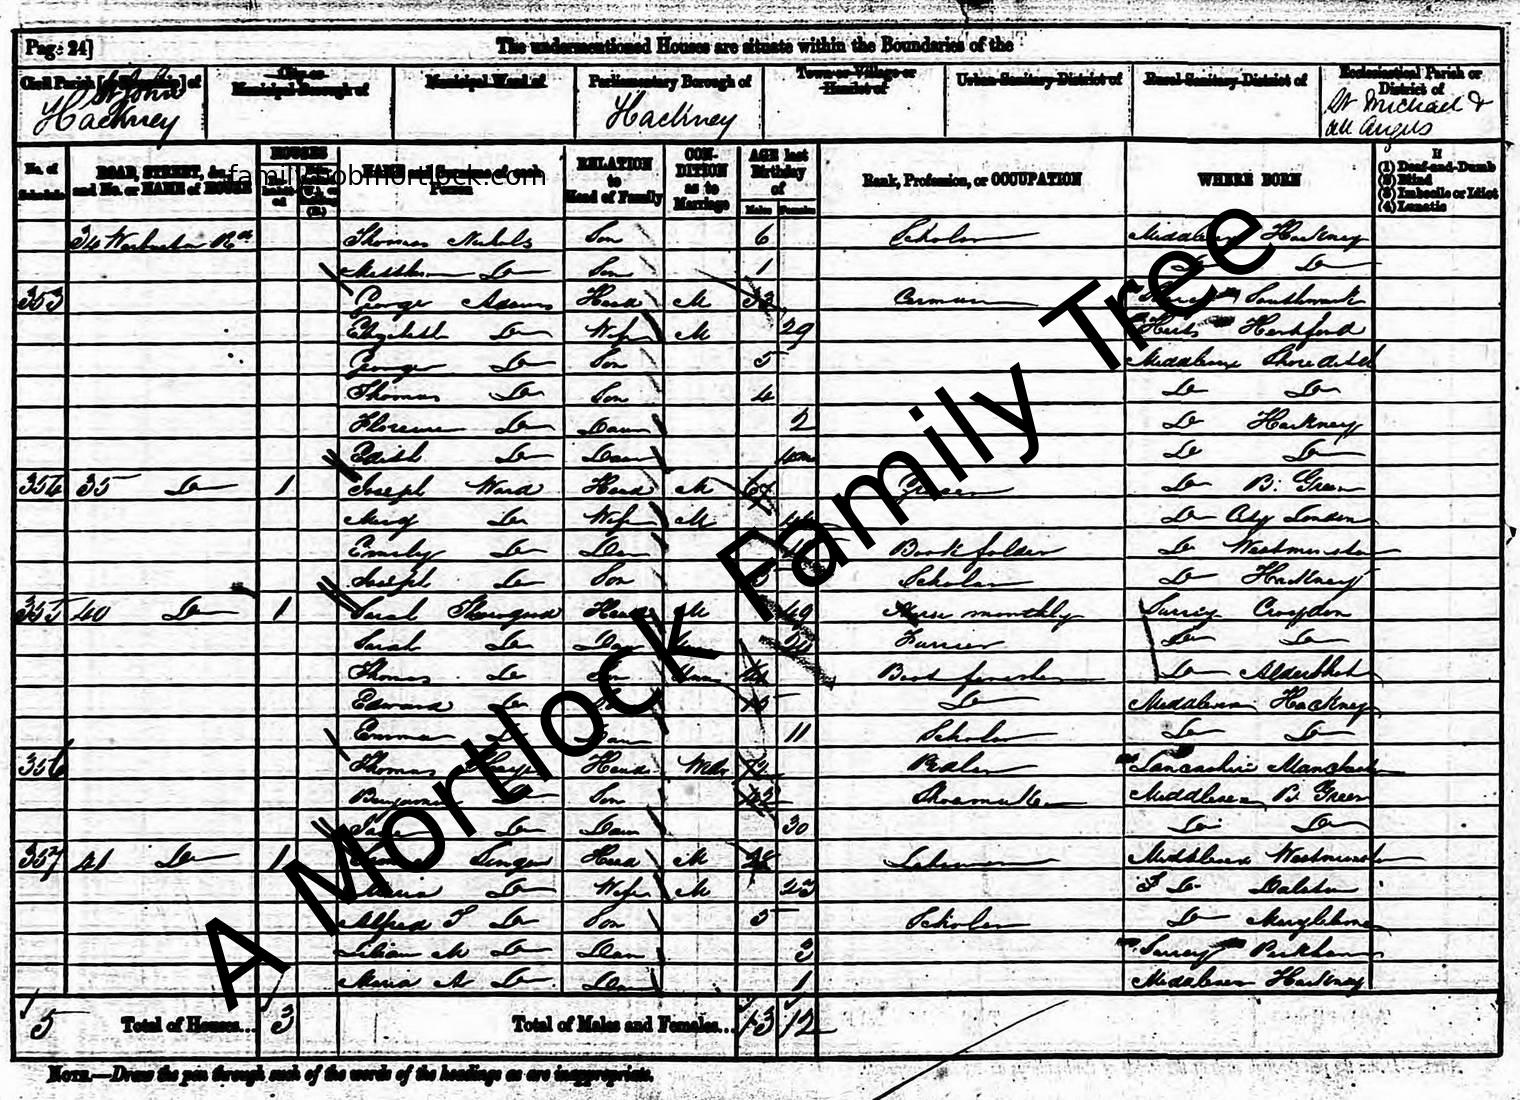 Page 24] The undermentioned Houses are situate within the Boundaries of the
Civil Parish [or Township] of City or Municipal Borough of Municipal Ward of Parliamentary Borough of Town or Village or Hamlet of Urban Sanitary District of Rural Sanitary District of Ecclesiastical Parish or District of
St John Hackney Hackney St Michael & All Angels
No. of Schedule ROAD, STREET, &c., and No. or NAME of HOUSE HOUSES NAME and Surname of each Person RELATION to Head of Family CONDITION as to Marriage AGE last Birthday of Males Females Rank, Profession, or OCCUPATION WHERE BORN If (1) Deaf-and-Dumb (2) Blind (3) Imbecile or Idiot (4) Lunatic
34 Rd Thomas Nichols Son 6 Scholar Middlesex Hackney
Do Son 1 Do Do
353 George Adams Head M Carman Southwark
Elizabeth Do Wife M 29 Herts Hertford
George Do Son 5 Middlesex Shoreditch
Thomas Do Son 4 Do Do
Florence Do Daur 2 Do Hackney
Edith Do Daur 4m Do Do
354 35 Do 1 Joseph Ward Head M Do B. Green
Mary Do Wife M Do City London
Emily Do Daur Book folder Do Westminster
Joseph Do Son Scholar Do Hackney
355 40 Do 1 Sarah Head M 49 Nurse monthly Surrey Croydon
Sarah Do Dau Furrier Do Do
Thomas Do Son Unm Boot finisher Do Aldershot
Edward Do 15 Do Middlesex Hackney
Emma Do Daur 11 Scholar Do Do
356 Thomas Head Widr Pedler Lancashire Manchester
Benjamin Do Son Shoemaker Middlesex B. Green
Do Daur 30 Do Do
357 41 Do 1 Singer Head M Labourer Middlesex Westminster
Maria Do Wife M 23 Do Dalston
Alfred T Do Son 5 Scholar Do Marylebone
Lilian M Do Dau 3 Surrey Peckham
Maria A Do Dau 1 Middlesex Hackney
5 Total of Houses... 3 Total of Males and Females... 13 12
NOTE.—Draw the pen through such of the words of the headings as are inappropriate.
A Mortlock Family Tree